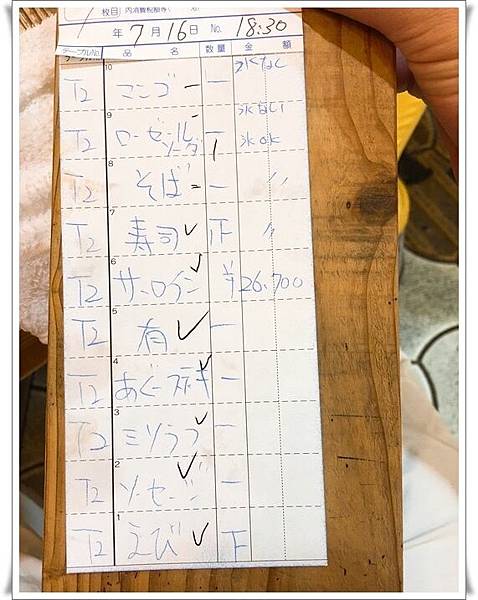 枚目 内消費税額等
年 7月 16日 No. 18:30
テーブルNo. 品 名 数量 金 額
10 T2 マンゴー 一 氷なし
9 T2 ローゼル ソーダ 一 氷なし 氷OK
8 T2 そば 一 〃
7 T2 寿司 正 〃
6 T2 サーロイン ¥26,700
5 T2 有 一
4 T2 あぐー 一
3 T2 ミソラフ 一
2 T2 ソーセージ 一
1 T2 えび 下